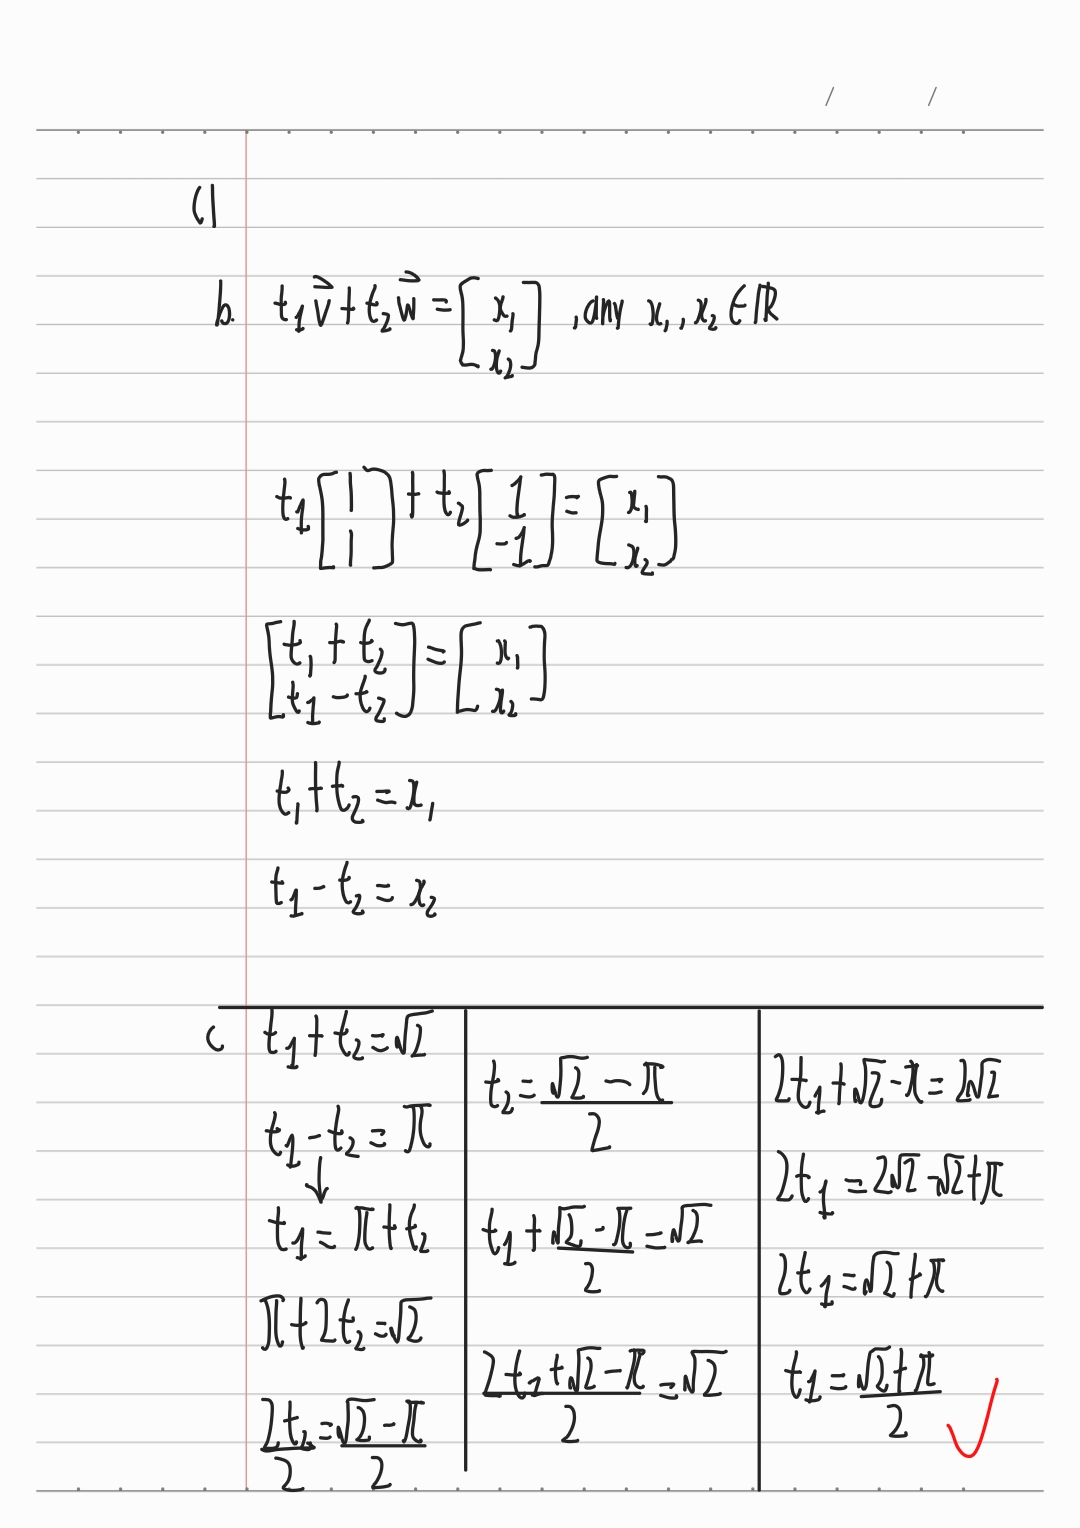 C1
b. t₁v⃗ + t₂w⃗ = [x₁ x₂] , any x₁, x₂ ∈ ℝ
t₁[1 1] + t₂[1 -1] = [x₁ x₂]
[t₁ + t₂ t₁ - t₂] = [x₁ x₂]
t₁ + t₂ = x₁
t₁ - t₂ = x₂
c t₁ + t₂ = √2
t₁ - t₂ = π
↓
t₁ = π + t₂
π + 2t₂ = √2
2t₂/2 = (√2 - π)/2
t₂ = (√2 - π)/2
t₁ + (√2 - π)/2 = √2
(2t₁ + √2 - π)/2 = √2
2t₁ + √2 - π = 2√2
2t₁ = 2√2 - √2 + π
2t₁ = √2 + π
t₁ = (√2 + π)/2 ✓